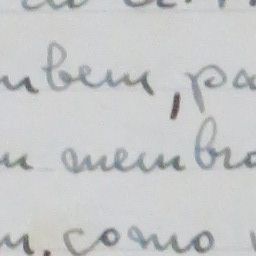 mbem, pa
m membro
m. como